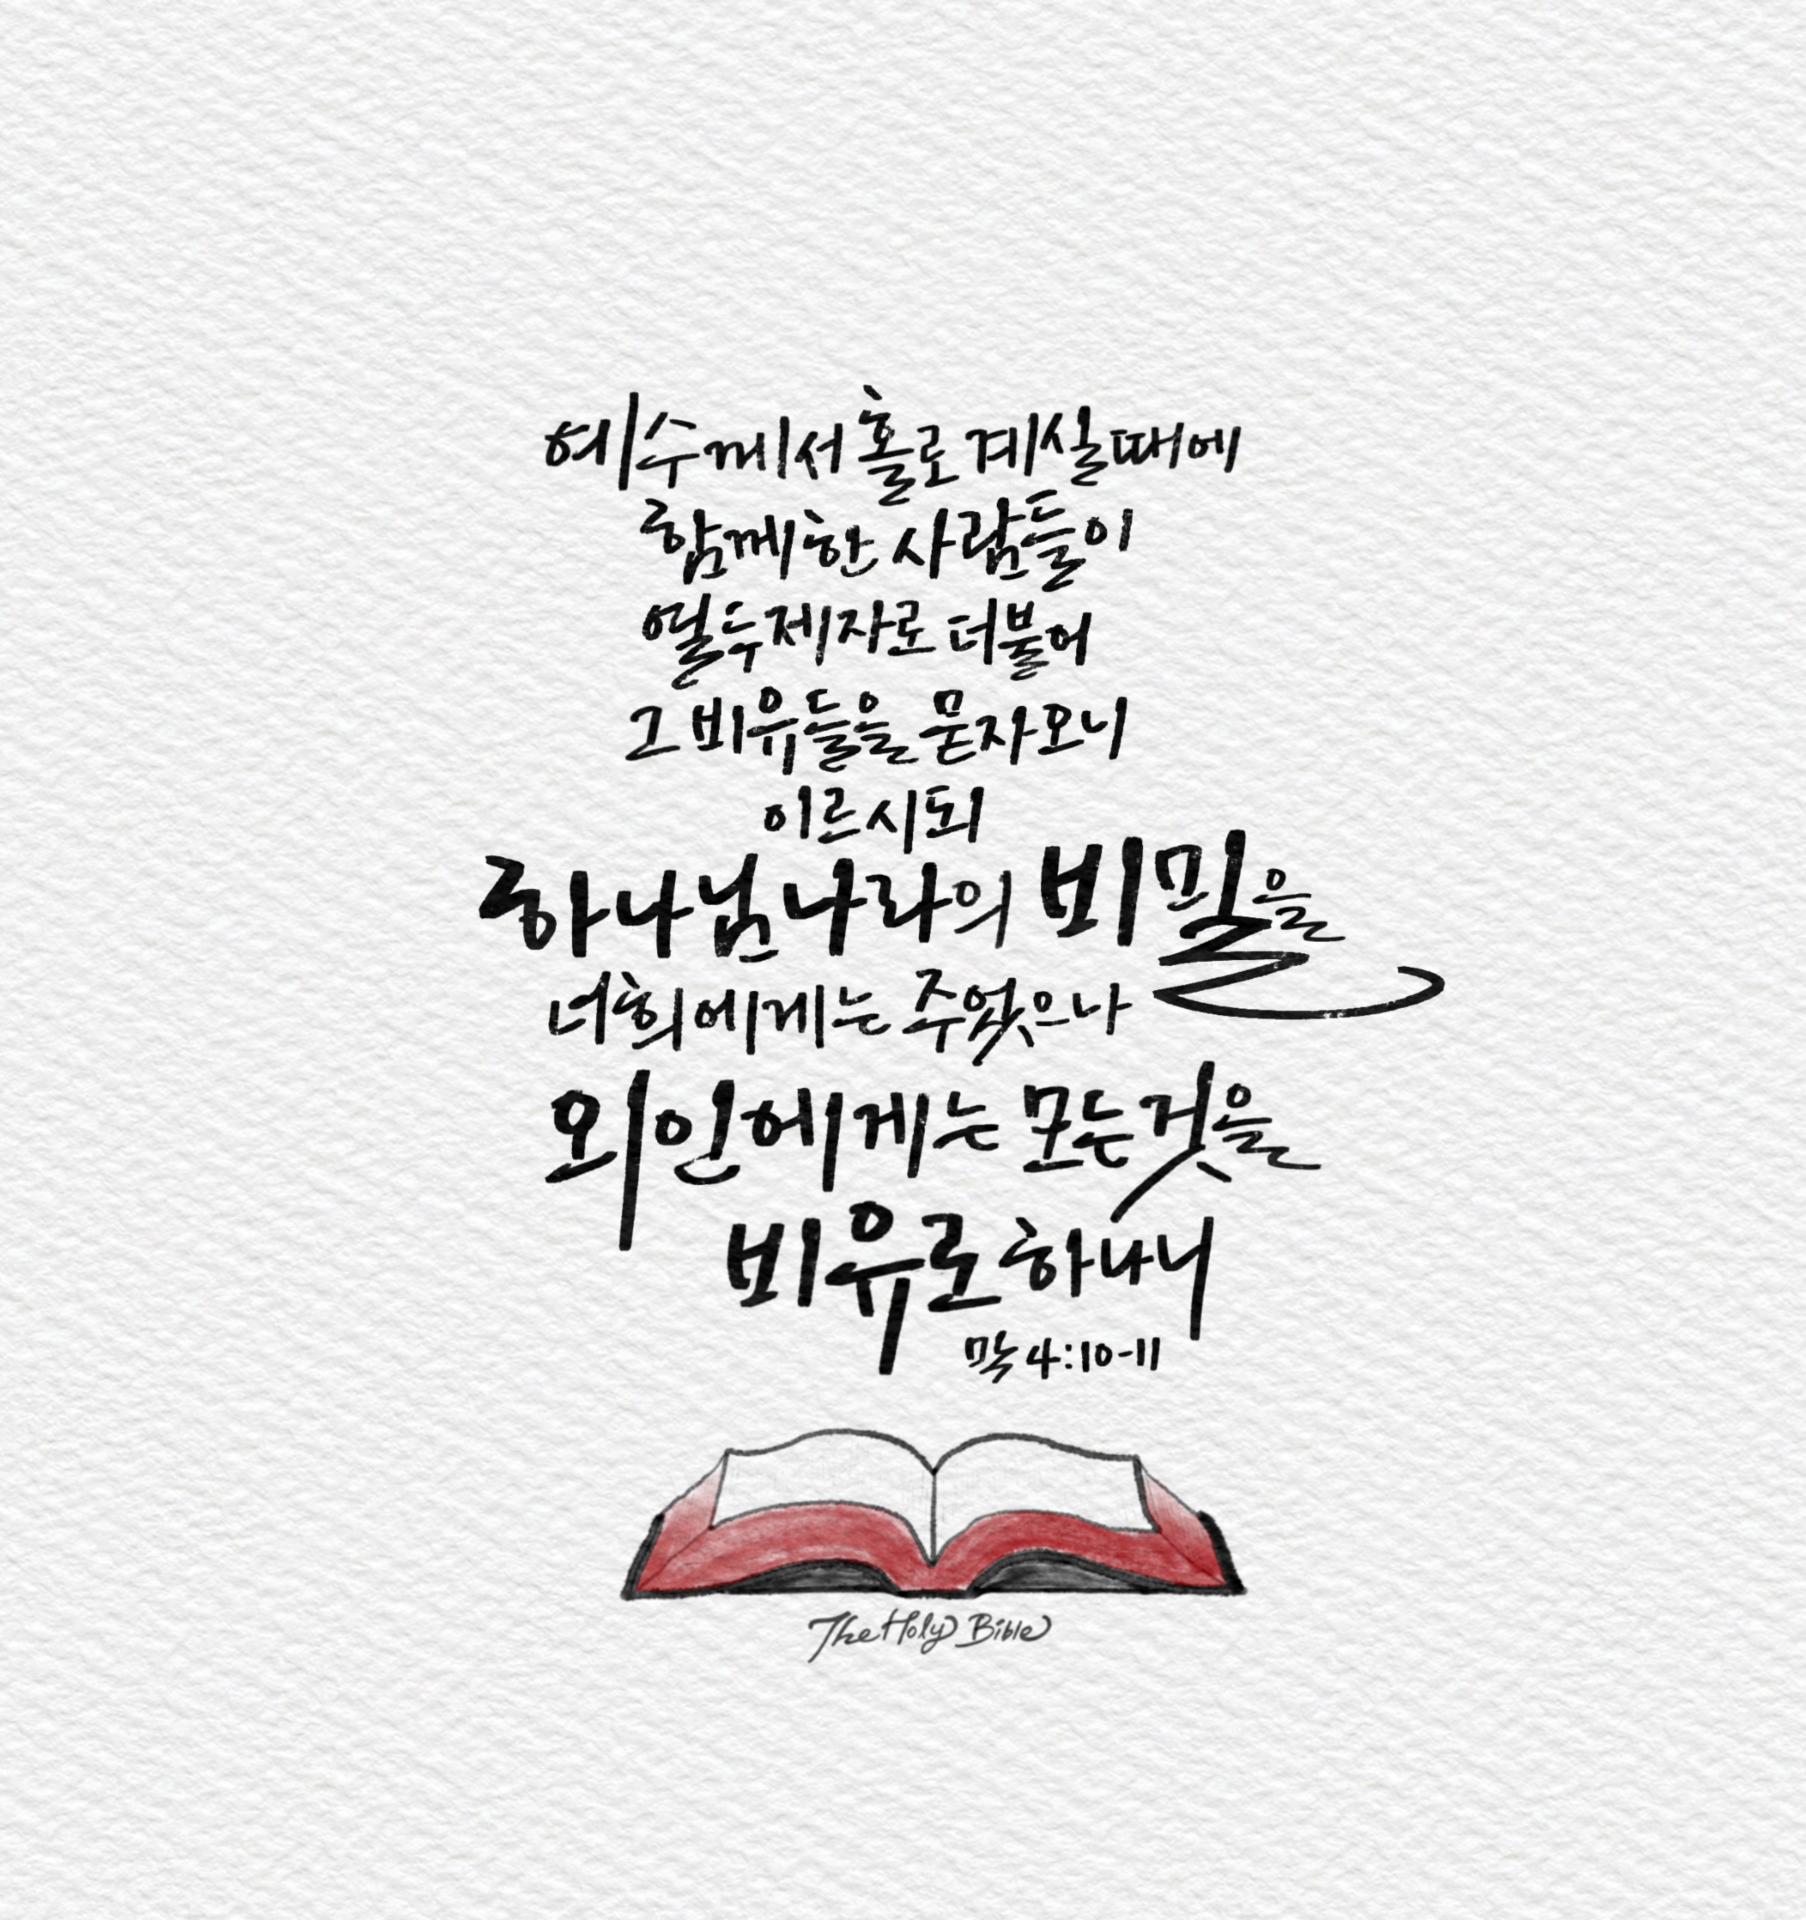 예수께서 홀로 계실 때에
함께 한 사람들이
열두 제자로 더불어
그 비유들을 묻자오니
이르시되
하나님 나라의 비밀을
너희에게는 주었으나
외인에게는 모든 것을
비유로 하나니
막 4:10-11
The Holy Bible